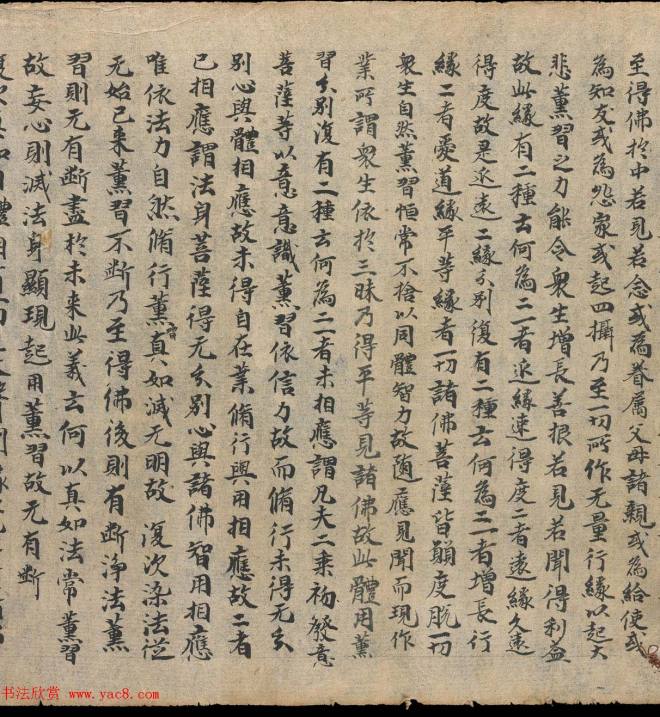 至得佛於中若見若念或為眷属父母諸親或為給使或
為知友或為怨家或起四攝乃至一切所作无量行緣以起大
悲薰習之力能令衆生增長善根若見若聞得利益
故此緣有二種云何為二一者近緣速得度二者遠緣久遠
得度故是近遠二緣分別復有二種云何為二一者增長行
緣二者受道緣平等緣者一切諸佛菩薩皆願度脱一切
衆生自然薰習恒常不捨以同體智力故随應見聞而現作
業所謂衆生依於三昧乃得平等見諸佛故此體用薰
習分別復有二種云何為二一者未相應謂凡夫二乘初發意
菩薩等以意意識薰習依信力故而脩行未得无分
別心與體相應故未得自在業脩行與用相應故二者
已相應謂法身菩薩得无分別心與諸佛智用相應
唯依法力自然脩行薰習真如滅无明故 復次染法從
无始已来薰習不斷乃至得佛後則有斷淨法薰
習則无有斷盡於未来此義云何以真如法常薰習
故妄心則滅法身顯現起用薰習故无有斷
书法欣赏 www.yac8.com